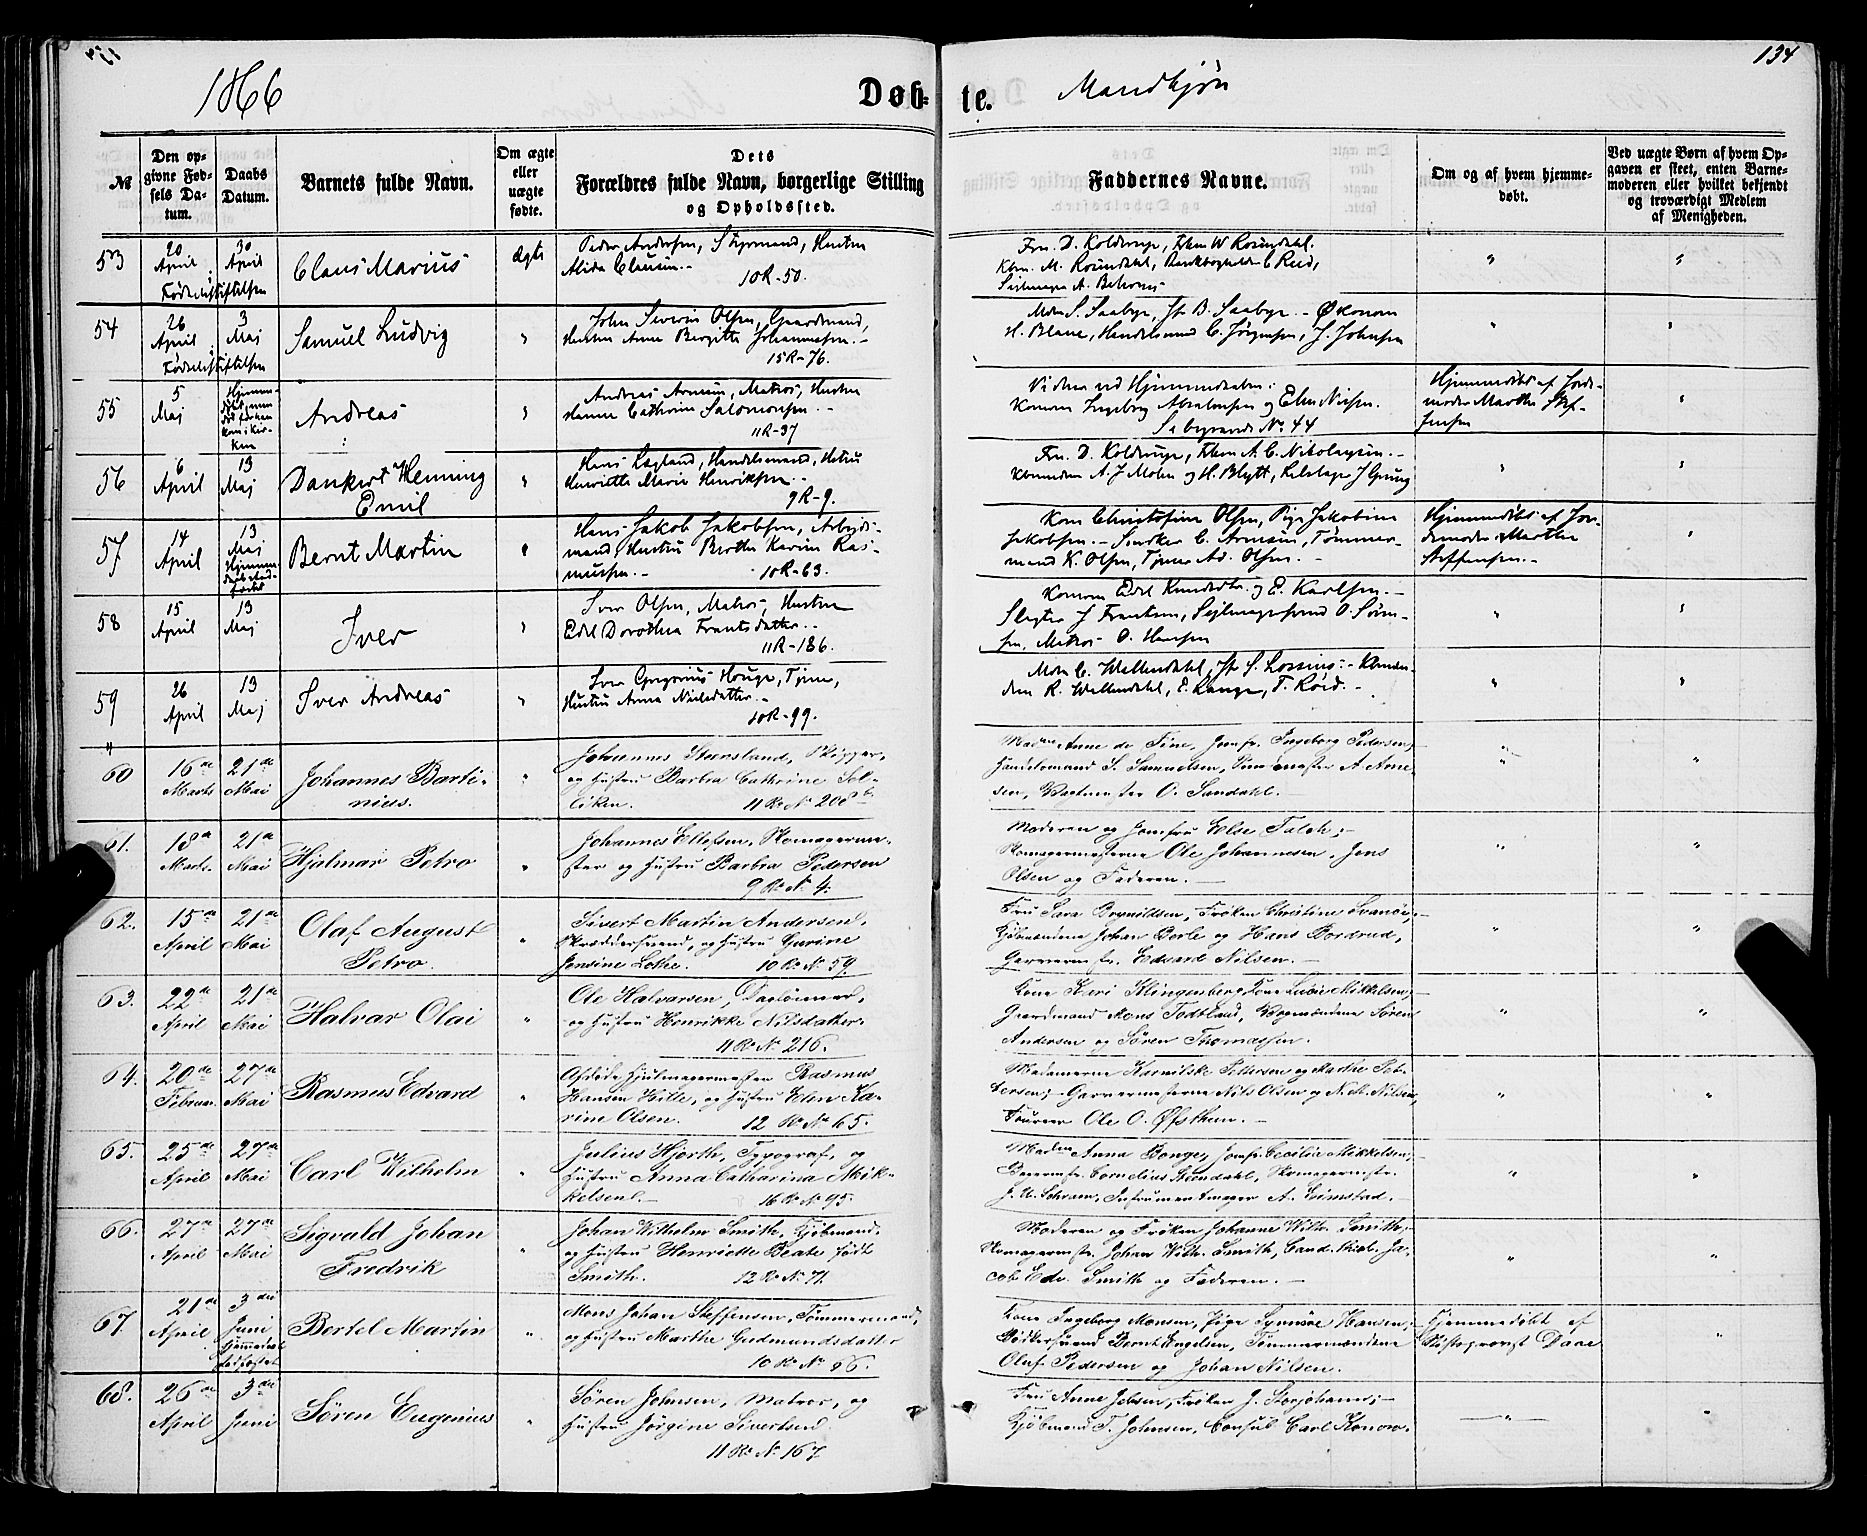 134
1866
Døb- te. Mandkjøn
№
Den opgivne Fødsels Datum.
Daabs Datum.
Barnets fulde Navn.
Om ægte eller uægte fødte.
Dets Forældres fulde Navn, borgerlige Stilling og Opholdssted.
Faddernes Navne.
Om og af hvem hjemmedøbt.
Ved uægte Børn af hvem Opgaven er skeet, enten Barnemoderen eller hvilket bekjendt og troværdigt Medlem af Menigheden.
53 20 April 30 April Claus Marius ægte Peder Andersen, Styrmand, Hustru
Alida Clausen.- 10R-50.
Fødselsstiftelsen
Fru. D. Kolderup, Frkn W Rosendahl.
Kbm. M. Rosendahl, C Reed,
Seilmager A.
54 26 April 3 Maj Samuel Ludvig " John Severin Olsen, Gaardmand,
Hustru Anne Birgitte Johannessen.-
15R-76.
Fødselsstiftelsen
Mdm S. Saabye, Jfr B. Saabye.- Økonom
H. Blaue, Handelsmand C. Jørgensen, J. Johnsen
55 5 Maj Andreas " Andreas Arnesen, Matros, Hustru
Hanne Cathrine Salomonsen.-
11R-37
Vidner ved Hjemmedaaben:
Konerne Ingeborg Abrahamsen og Elen Nielsen.
Se begravede No. 44
Hjemmedøbt af Jordemoder Marthe Steffensen
56 6 April 13 Maj Dankert Henning
Emil " Hans Lagland, Handelsmand, Hustru
Henriette Marie Henriksen.-
9R-9.
Fru. D. Kolderup, Frkn A. C. Nikolaysen.-
Kbmændene A. J Molen og H. Blytt, J Grung
57 14 April 13 Maj Bernt Martin " Hans Jakob Jakobsen, Arbeidsmand, Hustru Berthe Karine Rasmussen.- 10R-63.
Kone Christofine Olsen, Pige Jakobine
Jakobsen.- Snedker C. Arnesen, Tømmermand K. Olsen, Tjener Ad. Olsen.
Hjemmedøbt af Jordemoder Marthe
Steffensen.-
58 15 April 13 Maj Iver " Iver Olsen, Matros, Hustru
Edel Dorothea Frantsdatter.-
11R-186.
Konerne Edel Knudsdtr. og E. Karlsen.-
Slagter J Frantsen, Seilmagersvend O. Sørensen, Matros O. Hansen
59 26 April 13 Maj Iver Andreas " Iver Gregorius Houge, Tjener,
Hustru Anna Nielsdatter.-
10R-99.
Mdm C. Wallendahl, Jfr S. Lossius.- R. Wallendahl, E. Lange, T. Roed.-
60 16de Marts 21de Mai Johannes Bartinius. " Johannes Steensland, Skipper,
og Hustru Barbra Cathrine 11 Rd No 208b
Madme Anne de Fine, Jomfr. Ingeborg Pedersen;
Handelsmand S. Samuelsen, A. Arnesen, O. Sundahl.-
61. 18de Marts 21de Mai Hjalmar Petro " Johannes Ellefsen, Skomagermester og Hustru Barbra Pedersen
9 Rd No 4.
Moderen og Jomfru Else Falch;-
Skomagermesterne Ole Johannesen, Jens
Olsen og Faderen.-
62. 15de April 21de Mai Olaf August
Petro. " Sivert Martin Andersen,
Skræddersvend, og Hustru Gurine
Jensine Lothe. 10 Rd No 59.
Fru Sara Brynildsen, Frøken Christine Svanøe;-
Kjøbmændene Johan Berle og Hans Bordrud,
Garvermstr. Edvard Nilsen.-
63. 22de April 21de Mai Halvar Olai " Ole Halvarsen, Dagleiner,
og Hustru Henrikke Nilsdatter.
11 Rd No 216.
Kone Keri Klingenberg, Kone Lucie Mikkelsen;-
Gaardmand Mons Todtland, Søren
Andersen og Søren Thomassen.
64. 20de Februar 27de Mai Rasmus Edvard " Afdøde Hjulmagermester Rasmus
Hansen Hille, og Hustru Elen Karine Olsen. 12 Rd No 65.
Madamerne Pettersen og Marthe Pettersen;- Garvermesterne Nils Olsen og N. M. Nilsen,
Ole O. Øfsthun.-
65. 25de April 27de Mai Carl Wilhelm " Julius Hjorth, Typograf, og
Hustru Anna Catharina Mikkelsen.- 16 Rd No 95.
Madme Anna Bonge, Jomfr. Cecilie Mikkelsen;-
Cornelius Steendahl, Skomagermstr.
J. U. Schram, Instrumentmager A. Grimstad.-
66. 27de April 27de Mai Sigvald Johan
Fredrik " Johan Wilhelm Smith, Kjøbmand,
og Hustru Henriette Beate født
Smith. 12 Rd No 71.
Moderen og Frøken Johanne Wilh. Smith;-
Skomagermstr. Johan Wilh. Smith, Cand. theol. Jacob Edv. Smith og Faderen.-
67. 21de April 3die Juni Hjemmedaab stadfæstet Bertel Martin " Mons Johan Steffensen, Tømmermand,
og Hustru Marthe Gudmundsdatter
10 Rd No 86.
Kone Ingeborg Monsen, Pige Synnøve Hansen;-
Bødkersvend Bernt Engelsen, Tømmermændene
Oluf Pedersen og Johan Nilsen.
Hjemmedøbt af
Stiftsprovst Daae
68. 26de April 3die Juni Søren Eugenius " Søren Johnsen, Matros, og
Hustru Jørgine Sivertsen
11 Rd No 167
Fru Anne Jebsen, Frøken J. Storjohann;-
Kjøbmand F. Johnsen, Consul Carl Konow.